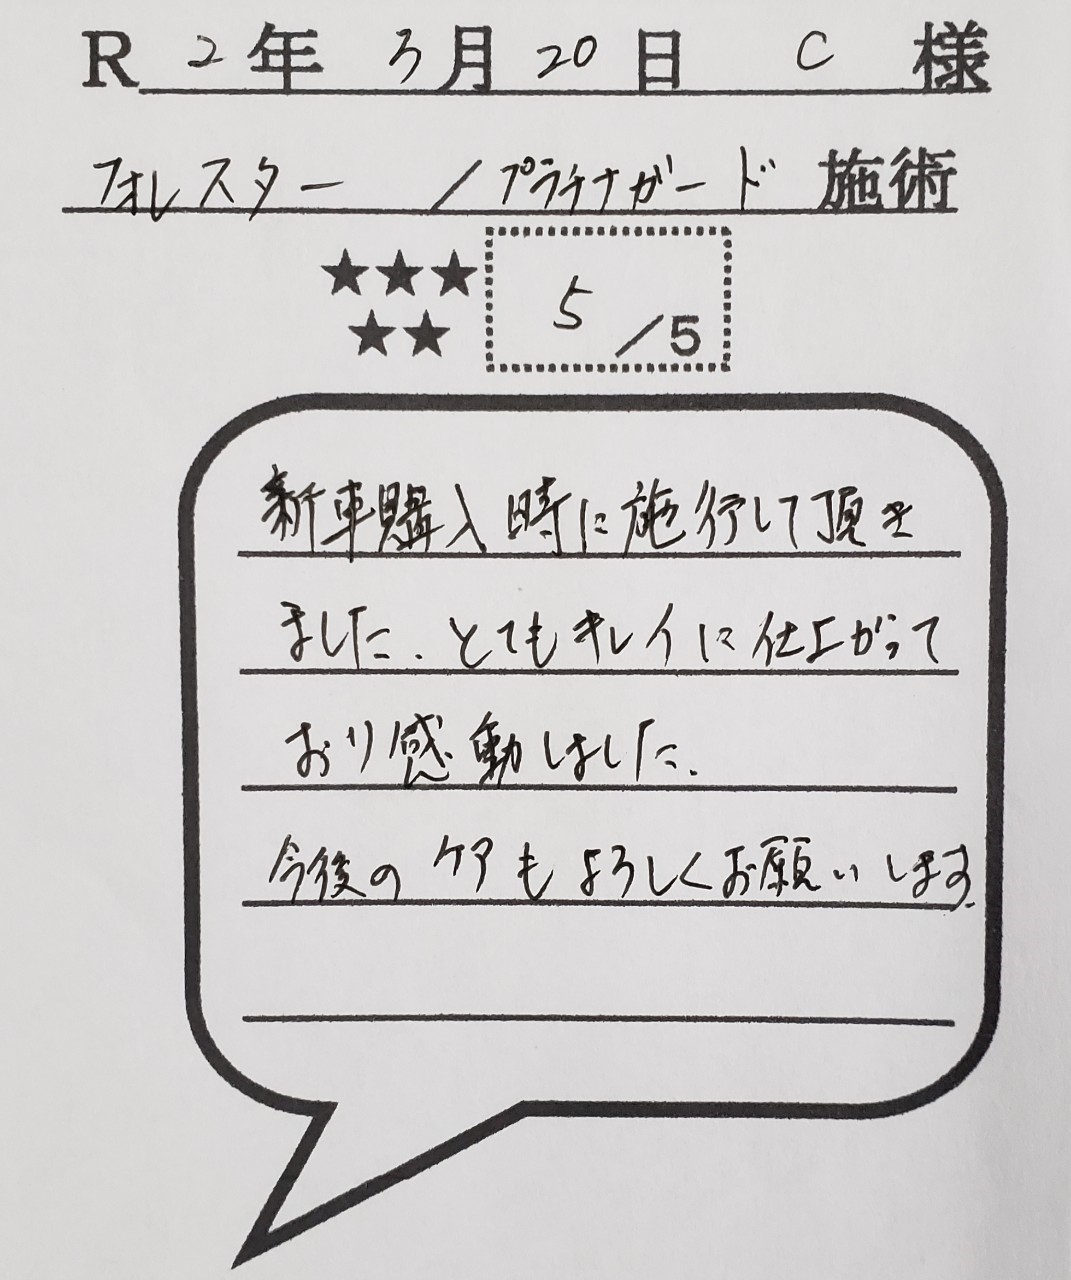 R 2年 3月 20日 C 様
フォレスター /プラチナガード 施術
★★★
★★
5/5
新車購入時に施行して頂き
ました. とてもキレイに仕上がって
おり感動しました.
今後のケアもよろしくお願いします.